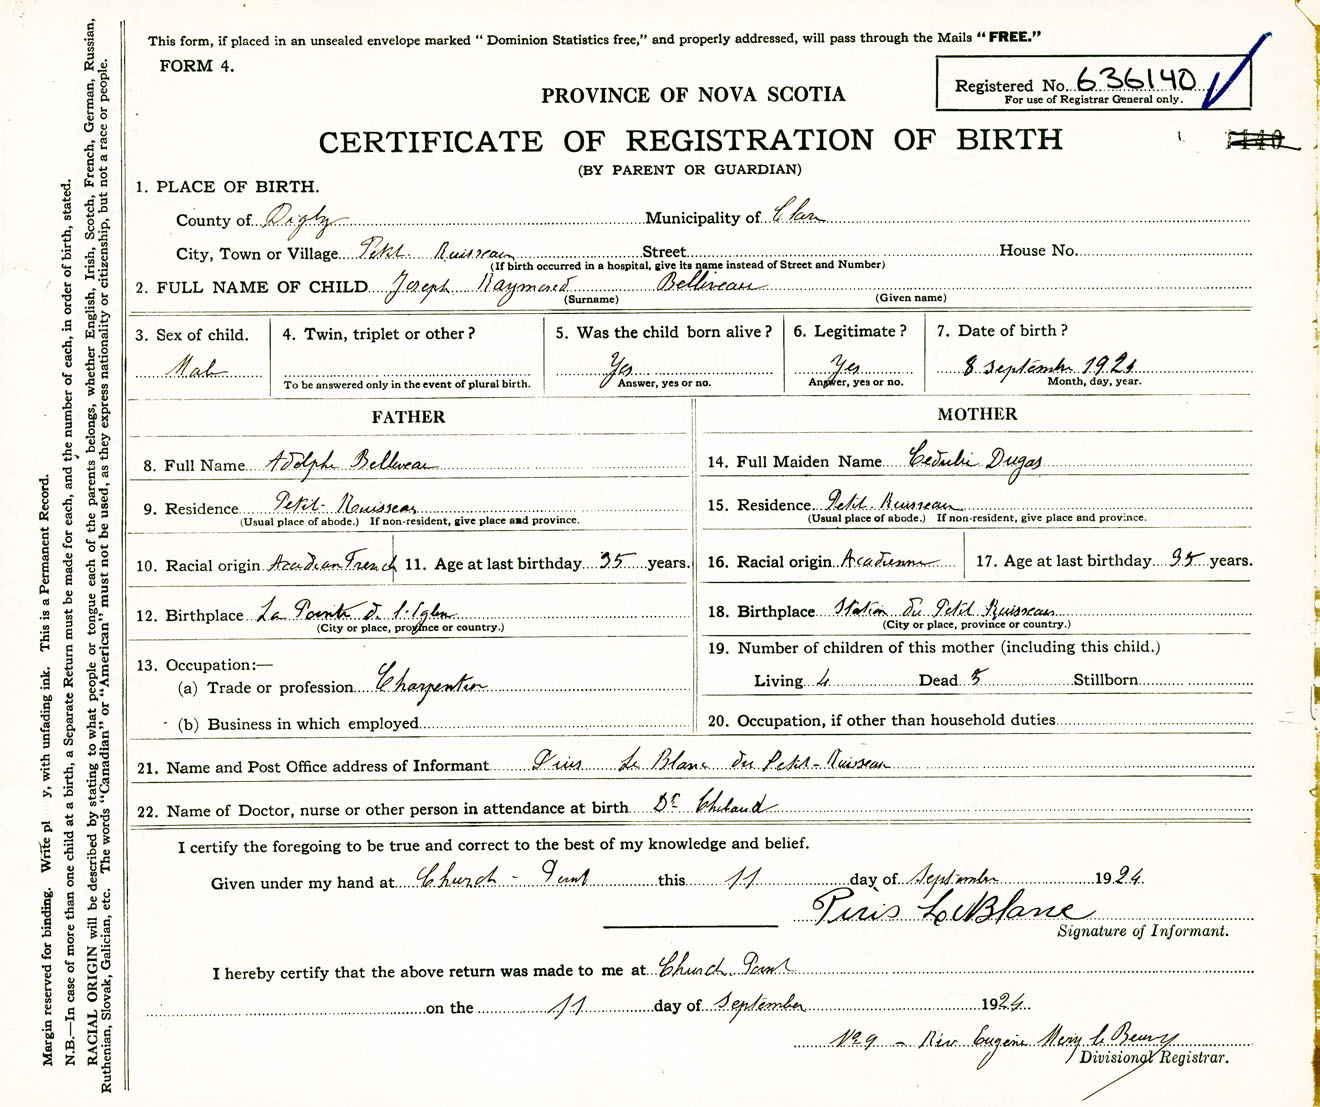 This form, if placed in an unsealed envelope marked " Dominion Statistics free," and properly addressed, will pass through the Mails "FREE."
FORM 4.
Registered No. 636140
For use of Registrar General only.
PROVINCE OF NOVA SCOTIA
CERTIFICATE OF REGISTRATION OF BIRTH
(BY PARENT OR GUARDIAN)
1. PLACE OF BIRTH.
County of Digby Municipality of Clare
City, Town or Village Petit Ruisseau Street House No.
(If birth occurred in a hospital, give its name instead of Street and Number)
2. FULL NAME OF CHILD Joseph Raymond Belliveau
(Surname) (Given name)
3. Sex of child. 4. Twin, triplet or other? 5. Was the child born alive? 6. Legitimate? 7. Date of birth?
Male Yes Yes 8 September 192
To be answered only in the event of plural birth. Answer, yes or no. Answer, yes or no. Month, day, year.
FATHER MOTHER
8. Full Name Adolphe Belliveau 14. Full Maiden Name Dugas
9. Residence Petit-Ruisseau 15. Residence Petit Ruisseau
(Usual place of abode.) If non-resident, give place and province. (Usual place of abode.) If non-resident, give place and province.
10. Racial origin Acadian French 11. Age at last birthday 35 years. 16. Racial origin Acadienne 17. Age at last birthday 35 years.
12. Birthplace La Pointe de l'Eglise 18. Birthplace Station du Petit Ruisseau
(City or place, province or country.) (City or place, province or country.)
19. Number of children of this mother (including this child.)
13. Occupation:—
(a) Trade or profession Charpentier Living 4 Dead 5 Stillborn
(b) Business in which employed 20. Occupation, if other than household duties
21. Name and Post Office address of Informant Pius Le Blanc du Petit-Ruisseau
22. Name of Doctor, nurse or other person in attendance at birth Dr
I certify the foregoing to be true and correct to the best of my knowledge and belief.
Given under my hand at Church - Point this 11 day of September 1924.
Pius LeBlanc
Signature of Informant.
I hereby certify that the above return was made to me at Church Point
on the 11 day of September 1924.
No 9 - Rev. Eugène
Divisional Registrar.
Margin reserved for binding. Write pl y, with unfading ink. This is a Permanent Record.
N.B.—In case of more than one child at a birth, a Separate Return must be made for each, and the number of each, in order of birth, stated.
RACIAL ORIGIN will be described by stating to what people or tongue each of the parents belongs, whether English, Irish, Scotch, French, German, Russian,
Ruthenian, Slovak, Galician, etc. The words "Canadian" or "American" must not be used, as they express nationality or citizenship, but not a race or people.